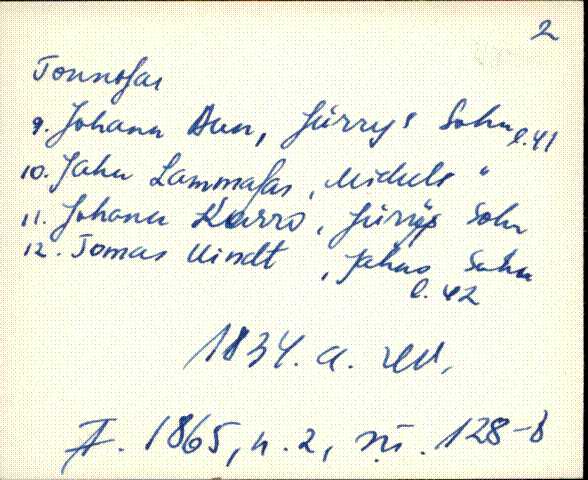 2
Tonnosar
9. Johann Aun, Jürrys Sohn l.41
10. Jahn Lammasar, Mickels "
11. Johann Karro, Jürrys Sohn
12. Tomas Uindt, Jahns Sohn
l. 42
1834. a. rev.
F. 1865, n. 2, s.ü. 128-8